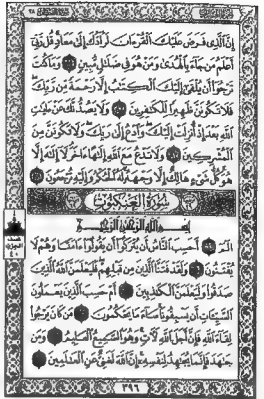 إِنَّ ٱلَّذِى فَرَضَ عَلَيْكَ ٱلْقُرْءَانَ لَرَآدُّكَ إِلَىٰ مَعَادٍ قُل رَّبِّىٓ
أَعْلَمُ مَن جَآءَ بِٱلْهُدَىٰ وَمَنْ هُوَ فِى ضَلَٰلٍ مُّبِينٍ ٨٥ وَمَا كُنتَ
تَرْجُوٓا۟ أَن يُلْقَىٰٓ إِلَيْكَ ٱلْكِتَٰبُ إِلَّا رَحْمَةً مِّن رَّبِّكَ
فَلَا تَكُونَنَّ ظَهِيرًا لِّلْكَٰفِرِينَ ٨٦ وَلَا يَصُدُّنَّكَ عَنْ ءَايَٰتِ
ٱللَّهِ بَعْدَ إِذْ أُنزِلَتْ إِلَيْكَ وَٱدْعُ إِلَىٰ رَبِّكَ وَلَا تَكُونَنَّ مِنَ
ٱلْمُشْرِكِينَ ٨٧ وَلَا تَدْعُ مَعَ ٱللَّهِ إِلَٰهًا ءَاخَرَ لَآ إِلَٰهَ إِلَّا
هُوَ كُلُّ شَىْءٍ هَالِكٌ إِلَّا وَجْهَهُۥ لَهُ ٱلْحُكْمُ وَإِلَيْهِ تُرْجَعُونَ ٨٨
سُورَةُ ٱلْعَنكَبُوتِ
بِسْمِ ٱللَّهِ ٱلرَّحْمَٰنِ ٱلرَّحِيمِ
الٓمٓ ١ أَحَسِبَ ٱلنَّاسُ أَن يُتْرَكُوٓا۟ أَن يَقُولُوٓا۟ ءَامَنَّا وَهُمْ لَا
يُفْتَنُونَ ٢ وَلَقَدْ فَتَنَّا ٱلَّذِينَ مِن قَبْلِهِمْ فَلَيَعْلَمَنَّ ٱللَّهُ ٱلَّذِينَ
صَدَقُوا۟ وَلَيَعْلَمَنَّ ٱلْكَٰذِبِينَ ٣ أَمْ حَسِبَ ٱلَّذِينَ يَعْمَلُونَ
ٱلسَّيِّـَٔاتِ أَن يَسْبِقُونَا سَآءَ مَا يَحْكُمُونَ ٤ مَن كَانَ يَرْجُوا۟
لِقَآءَ ٱللَّهِ فَإِنَّ أَجَلَ ٱللَّهِ لَءَاتٍ وَهُوَ ٱلسَّمِيعُ ٱلْعَلِيمُ ٥ وَمَن
جَٰهَدَ فَإِنَّمَا يُجَٰهِدُ لِنَفْسِهِۦٓ إِنَّ ٱللَّهَ لَغَنِىٌّ عَنِ ٱلْعَٰلَمِينَ ٦
٣٩٦